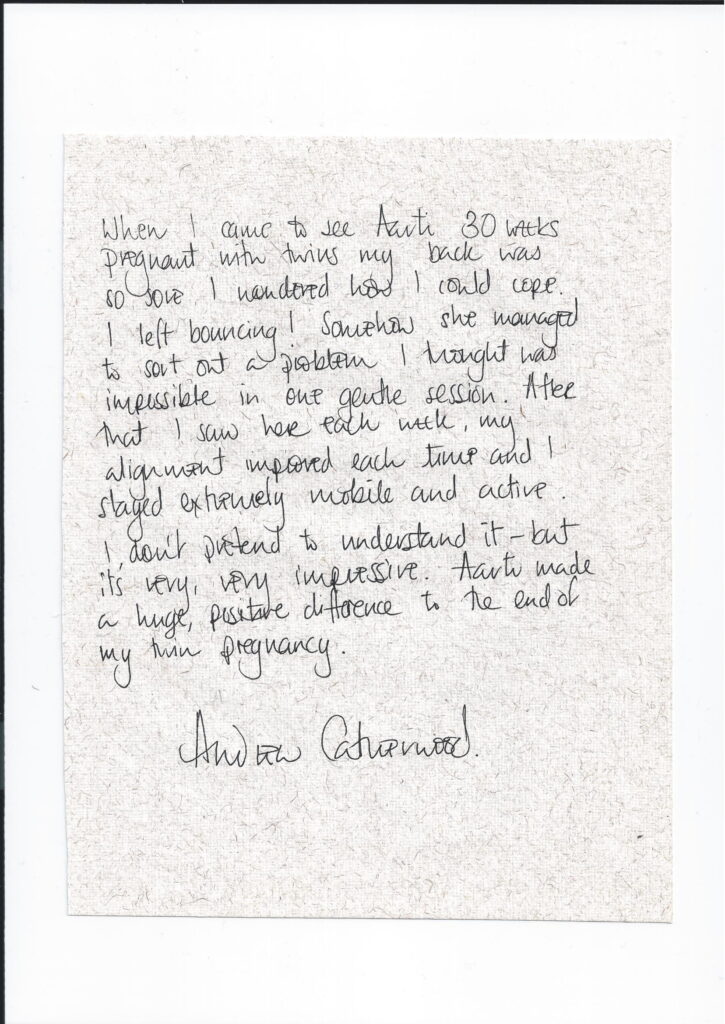 When I came to see Aarti 30 weeks
pregnant with twins my back was
so sore I wondered how I could cope.
I left bouncing! Somehow she managed
to sort out a problem I thought was
impossible in one gentle session. After
that I saw here each week, my
alignment improved each time and I
stayed extremely mobile and active.
I don't pretend to understand it – but
its very, very impressive. Aarti made
a huge, positive difference to the end of
my twin pregnancy.
Catherwood.